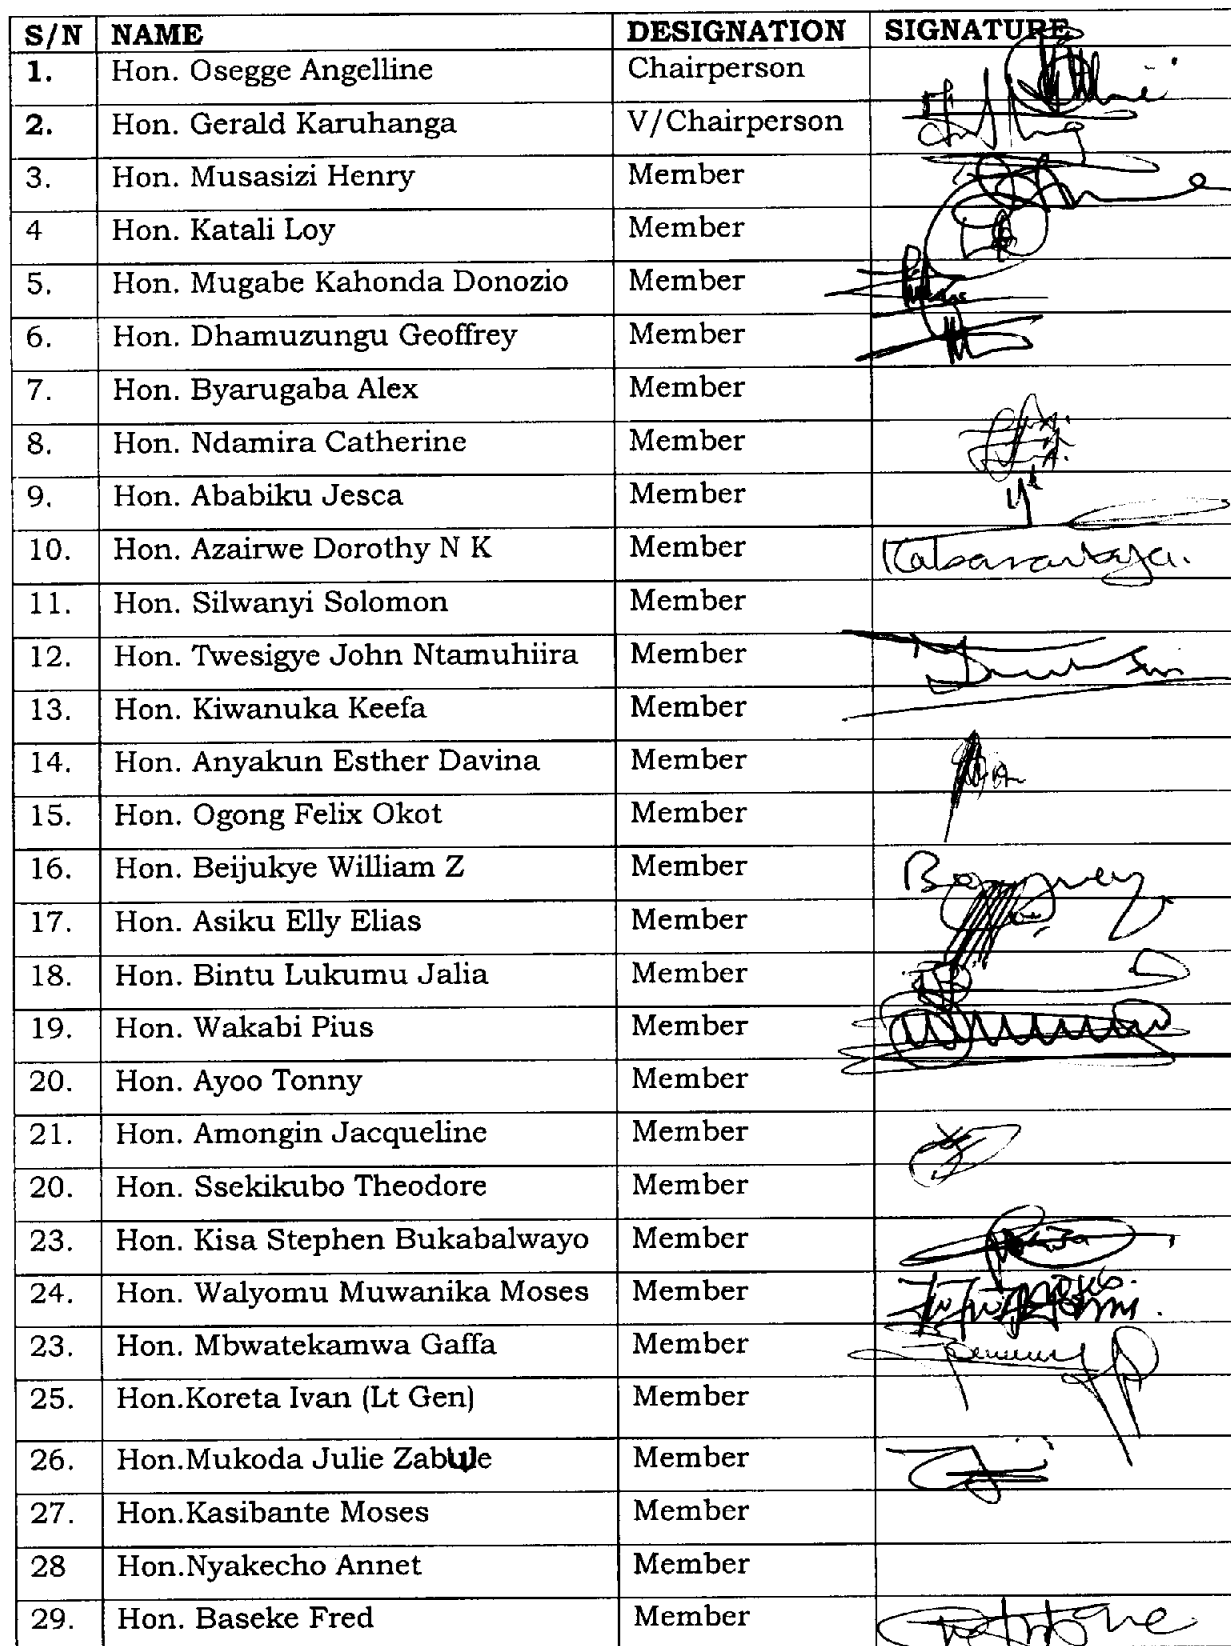 S/N NAME DESIGNATION SIGNATURE
1. Hon. Osegge Angelline Chairperson
2. Hon. Gerald Karuhanga V/Chairperson
3. Hon. Musasizi Henry Member
4 Hon. Katali Loy Member
5. Hon. Mugabe Kahonda Donozio Member
6. Hon. Dhamuzungu Geoffrey Member
7. Hon. Byarugaba Alex Member
8. Hon. Ndamira Catherine Member
9. Hon. Ababiku Jesca Member
10. Hon. Azairwe Dorothy N K Member
11. Hon. Silwanyi Solomon Member
12. Hon. Twesigye John Ntamuhiira Member
13. Hon. Kiwanuka Keefa Member
14. Hon. Anyakun Esther Davina Member
15. Hon. Ogong Felix Okot Member
16. Hon. Beijukye William Z Member
17. Hon. Asiku Elly Elias Member
18. Hon. Bintu Lukumu Jalia Member
19. Hon. Wakabi Pius Member
20. Hon. Ayoo Tonny Member
21. Hon. Amongin Jacqueline Member
20. Hon. Ssekikubo Theodore Member
23. Hon. Kisa Stephen Bukabalwayo Member
24. Hon. Walyomu Muwanika Moses Member
23. Hon. Mbwatekamwa Gaffa Member
25. Hon.Koreta Ivan (Lt Gen) Member
26. Hon.Mukoda Julie Zabule Member
27. Hon.Kasibante Moses Member
28 Hon.Nyakecho Annet Member
29. Hon. Baseke Fred Member